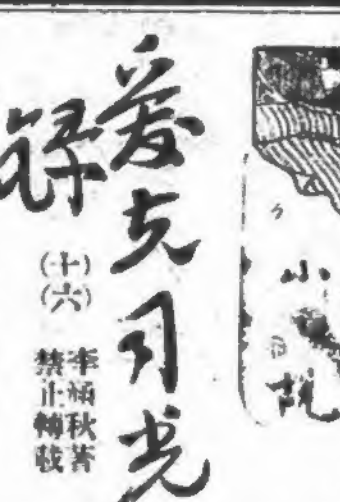 小說
愛克司光
錄
(十六)
李涵秋著
禁止轉載